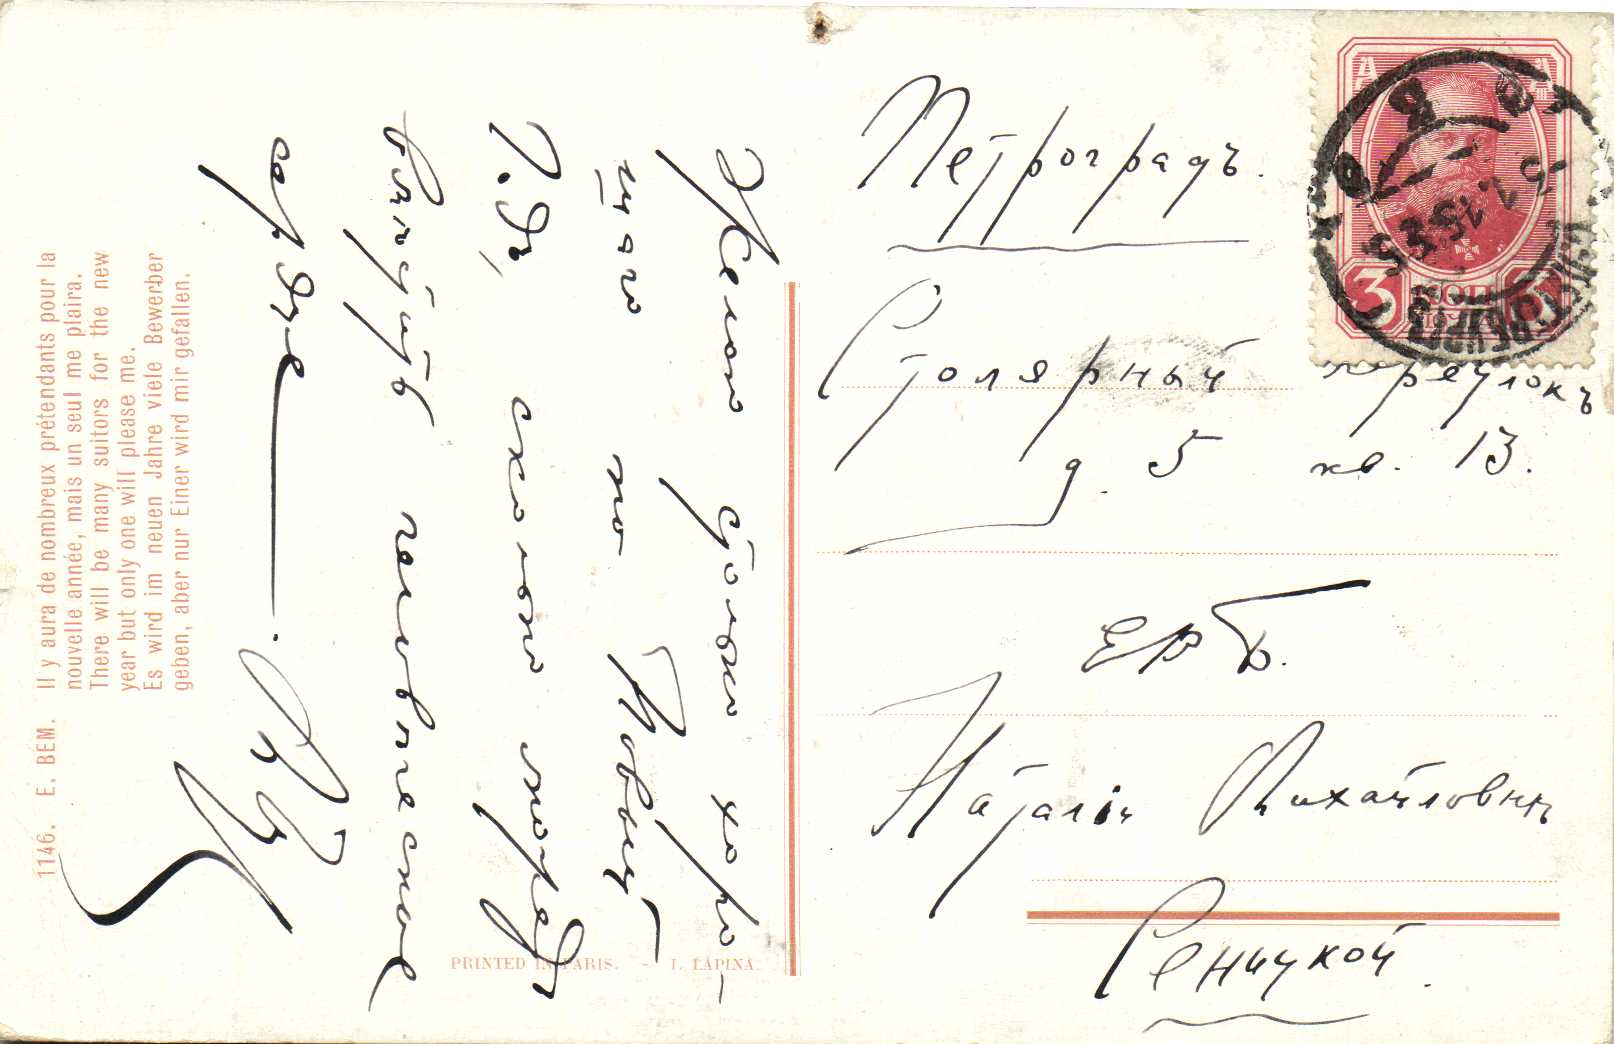 1146. E. BEM. Il y aura de nombreux prétendants pour la
nouvelle année, mais un seul me plaira.
There will be many suitors for the new
year but only one will please me.
Es wird im neuen Jahre viele Bewerber
geben, aber nur Einer wird mir gefallen.
Желаю столько хоро-
шаго на Новый
Г.дъ, сколько
вместитъ человеческое
сердце
PRINTED IN PARIS. - I. LAPINA.
Петроградъ.
Столярный переулокъ
д. 5 кв. 13.
ЕВБ.
Наталіи Михайловне
Сеницкой.
3 КОП 3